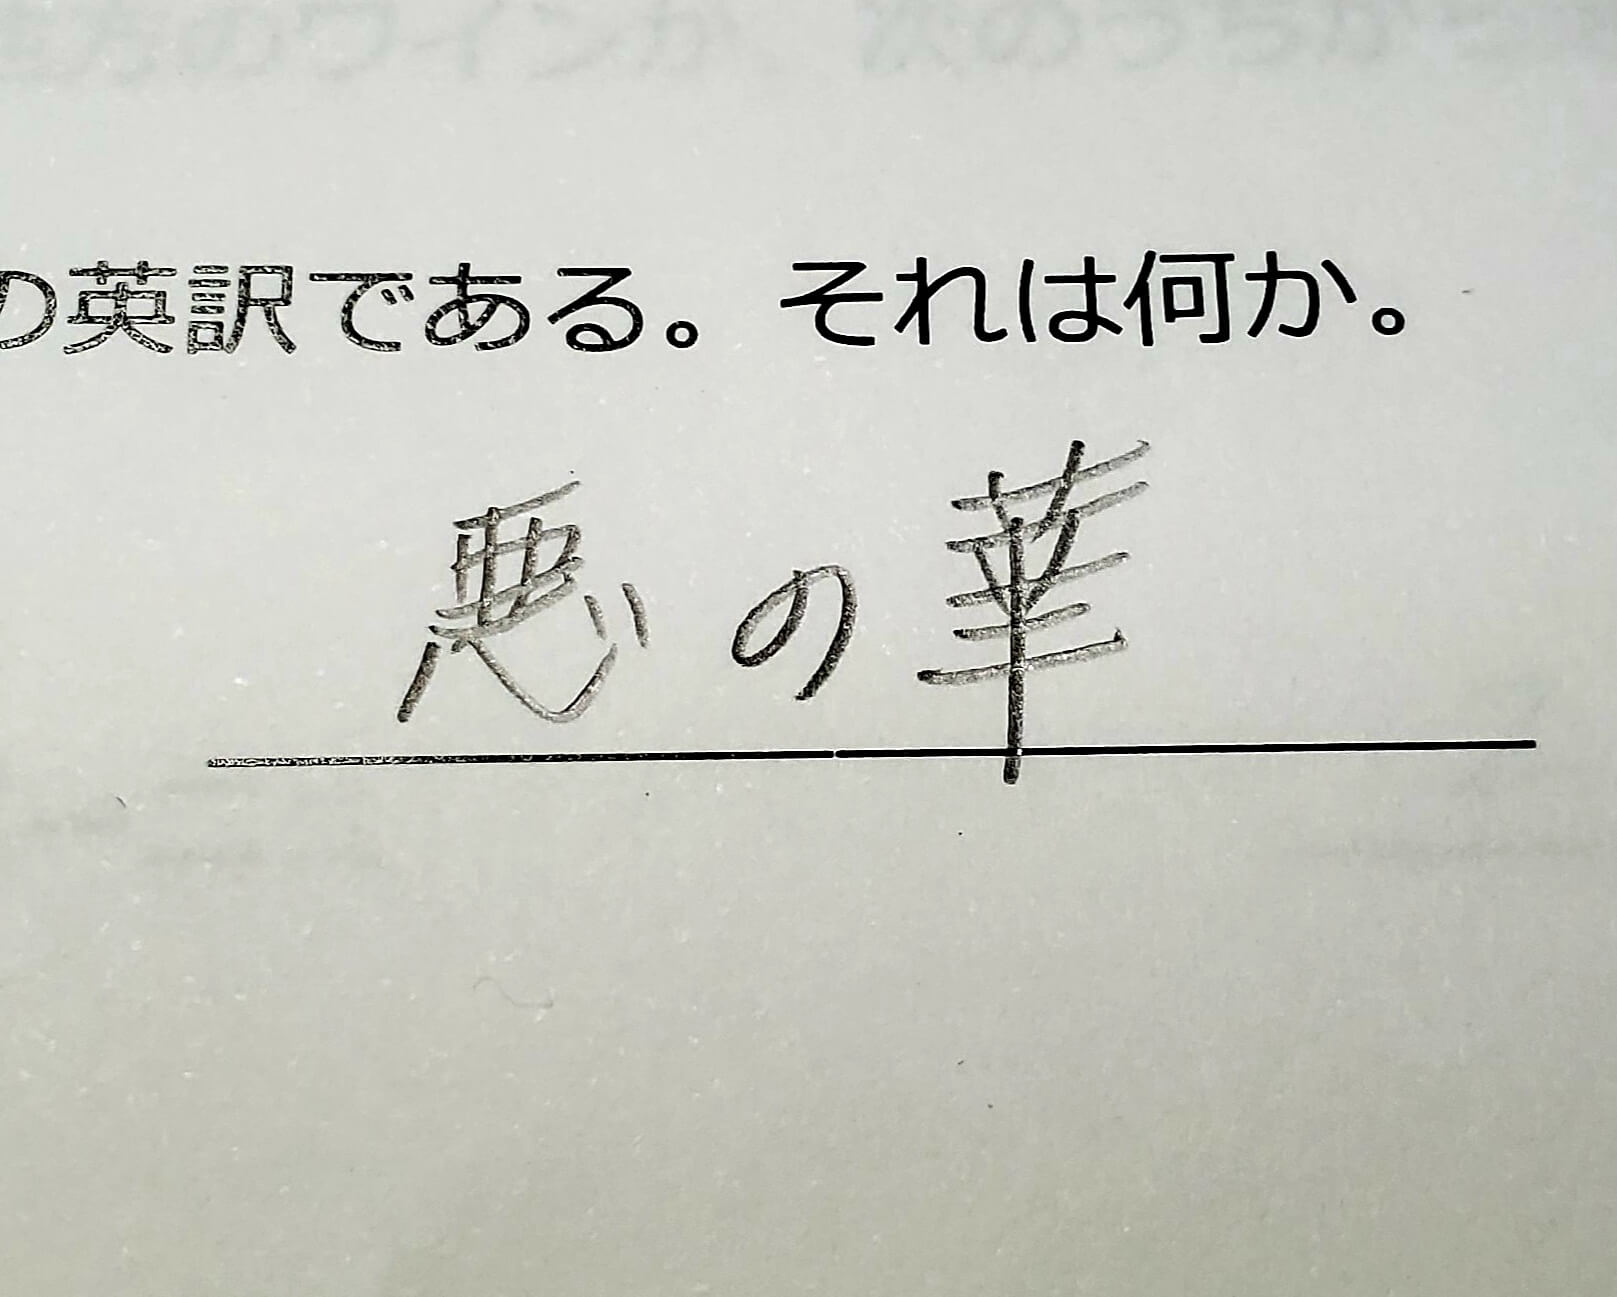 の英訳である。それは何か。
悪の華